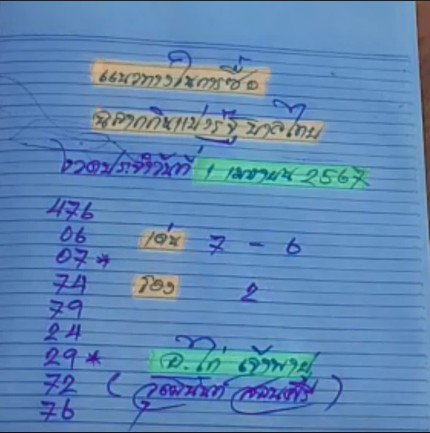 แนวทางในการซื้อ
ฉลากกินแบ่งรัฐบาลไทย
งวดประจำวันที่ 1 เมษายน 2567
476
06 เด่น 7 - 6
07 *
74 รอง 2
79
24
29 * อ. ไก่ เจ้าพายุ
72
76